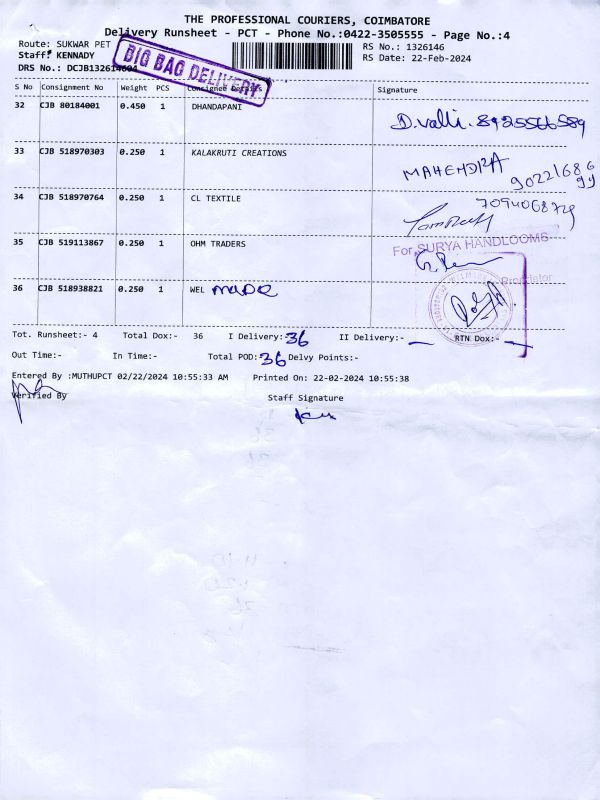 THE PROFESSIONAL COURIERS, COIMBATORE
Delivery Runsheet - PCT - Phone No.:0422-3505555 - Page No.:4
Route: SUKWAR PET
RS No.: 1326146
Staff: KENNADY
RS Date: 22-Feb-2024
DRS No.: DCJB1326
BIG BAG DELIVERY
S No Consignment No Weight PCS Consignee Details Signature
32 CJB 80184001 0.450 1 DHANDAPANI
D.valli. 8925566589
33 CJB 518970303 0.250 1 KALAKRUTI CREATIONS
MAHENDRA
34 CJB 518970764 0.250 1 CL TEXTILE
7094068729
35 CJB 519113867 0.250 1 OHM TRADERS
For SURYA HANDLOOMS
Proprietor
36 CJB 518938821 0.250 1 WEL MADE
Tot. Runsheet:- 4 Total Dox:- 36 I Delivery:- 36 II Delivery:- — RTN Dox:- —
Out Time:- In Time:- Total POD: 36 Delvy Points:-
Entered By :MUTHUPCT 02/22/2024 10:55:33 AM Printed On: 22-02-2024 10:55:38
Verified By
Staff Signature